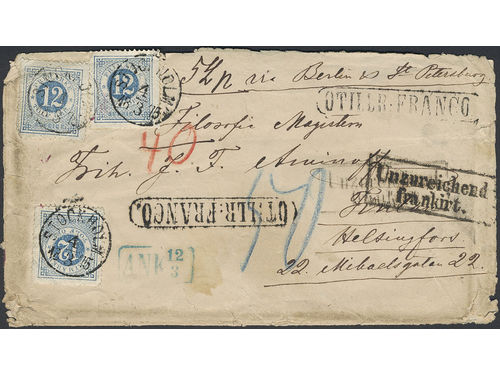 12 12
STOCKHOLM
via Berlin & St Petersburg
OTILLR-FRANCO.
Filosofie Magistern
40
Frih. J. F. Aminoff
Unzureichend
frankirt.
OTILLR-FRANCO.
170
Helsingfors
STOCKHOLM
12
ANK 12/3
22. Mikaelsgatan 22.